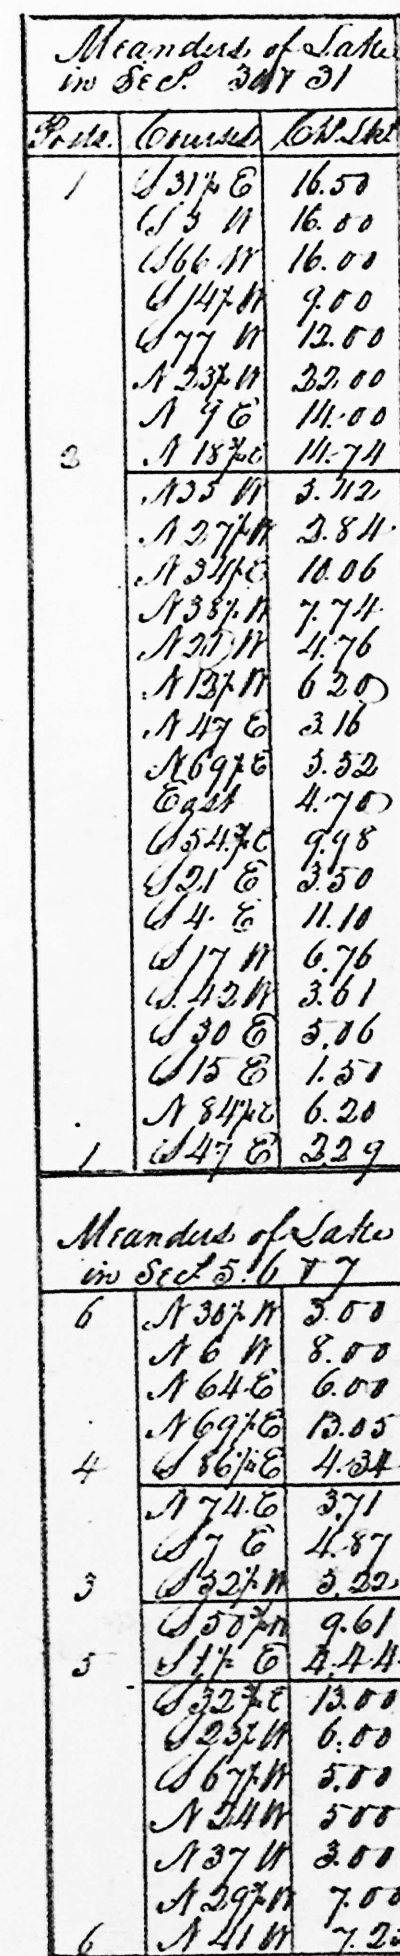 Meanders of Lake
in Sec's. 30 & 31
Posts. Courses Ch. Lks
1 S 31½ E 16.50
S 3 W 16.00
S 66 W 16.00
S 14½ W 9.00
S 77 W 12.00
N 23½ W 22.00
N 9 E 14.00
2 N 18¾ E 14.74
N 35 W 3.42
N 27½ W 2.84
N 34½ E 10.06
N 38½ W 7.74
N 22 W 4.76
N 12½ W 6.20
N 47 E 3.16
N 69½ E 5.52
East 4.70
S 54¾ E 9.98
S 21 E 3.50
S 4 E 11.10
S 17 W 6.76
S 42 W 3.61
S 30 E 5.06
S 15 E 1.50
N 84½ E 6.20
1 S 47 E 2.29
Meanders of Lake
in Sec's 5. 6 & 7
6 N 30½ W 3.00
N 6 W 8.00
N 64 E 6.00
N 69½ E 13.05
4 S 86½ E 4.34
N 74 E 3.71
S 7 E 4.87
3 S 32½ W 5.22
S 50¾ W 9.61
5 S 1½ E 4.44
S 32¾ E 13.00
S 23½ W 6.00
S 67½ W 5.00
N 24 W 5 00
N 37 W 3.00
N 29¾ W 7.00
6 N 41 W 7.2